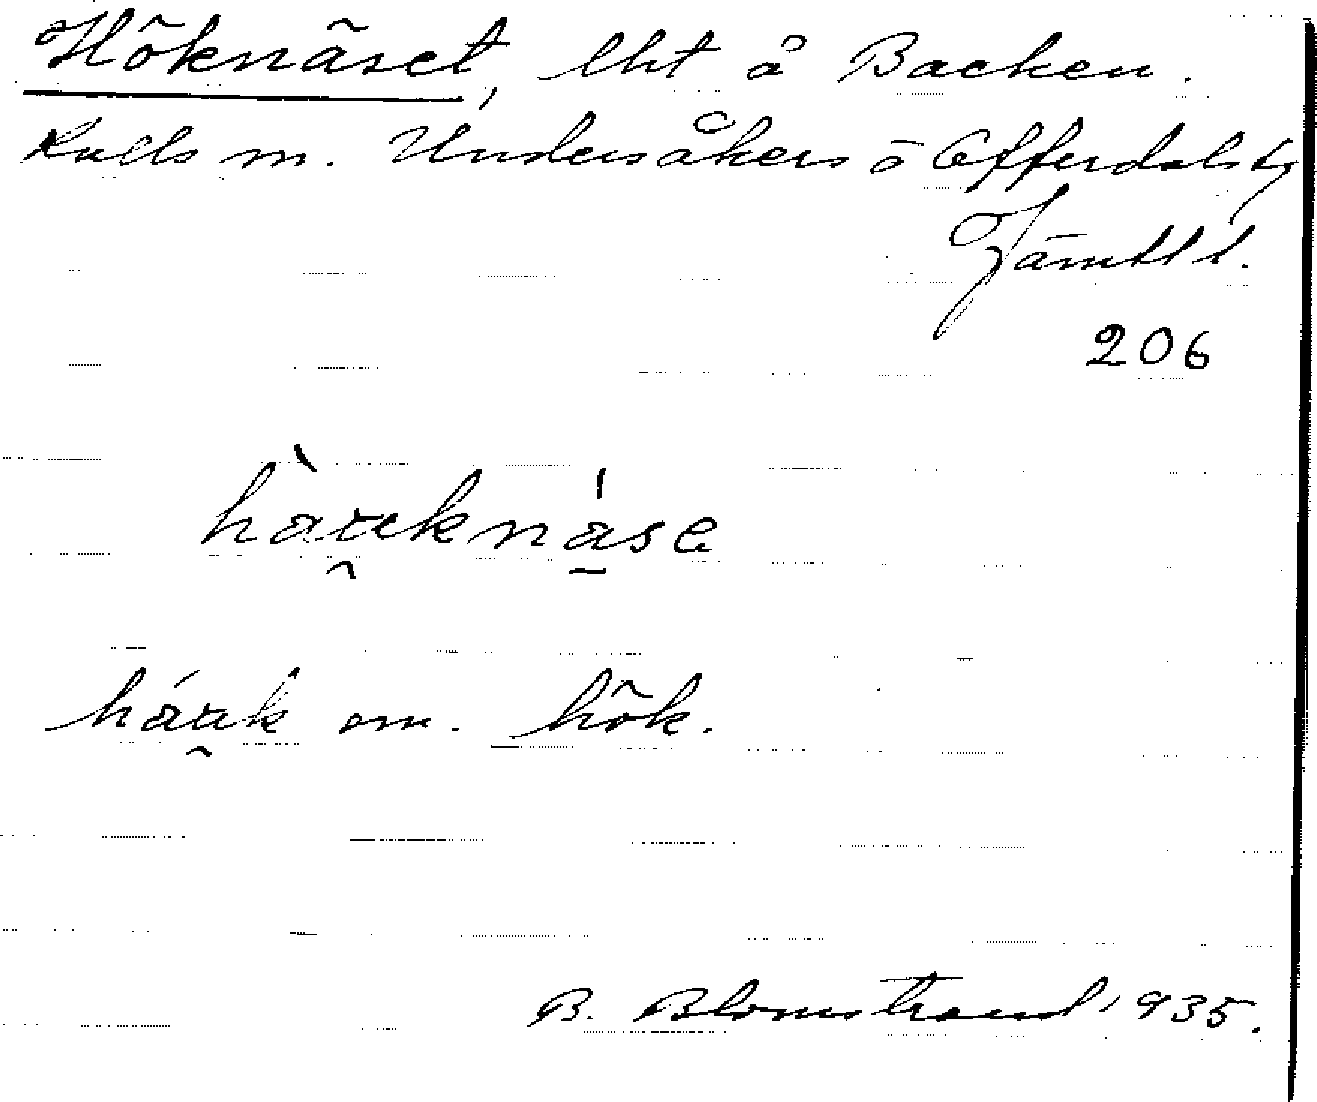 Höknäset, lht å Backen.
Kalls sn. Undersåkers o Offerdals tg
Jämtl l.
206
hàu̯knáse
háu̯k m. hök.
B. Blomstrand 1935.